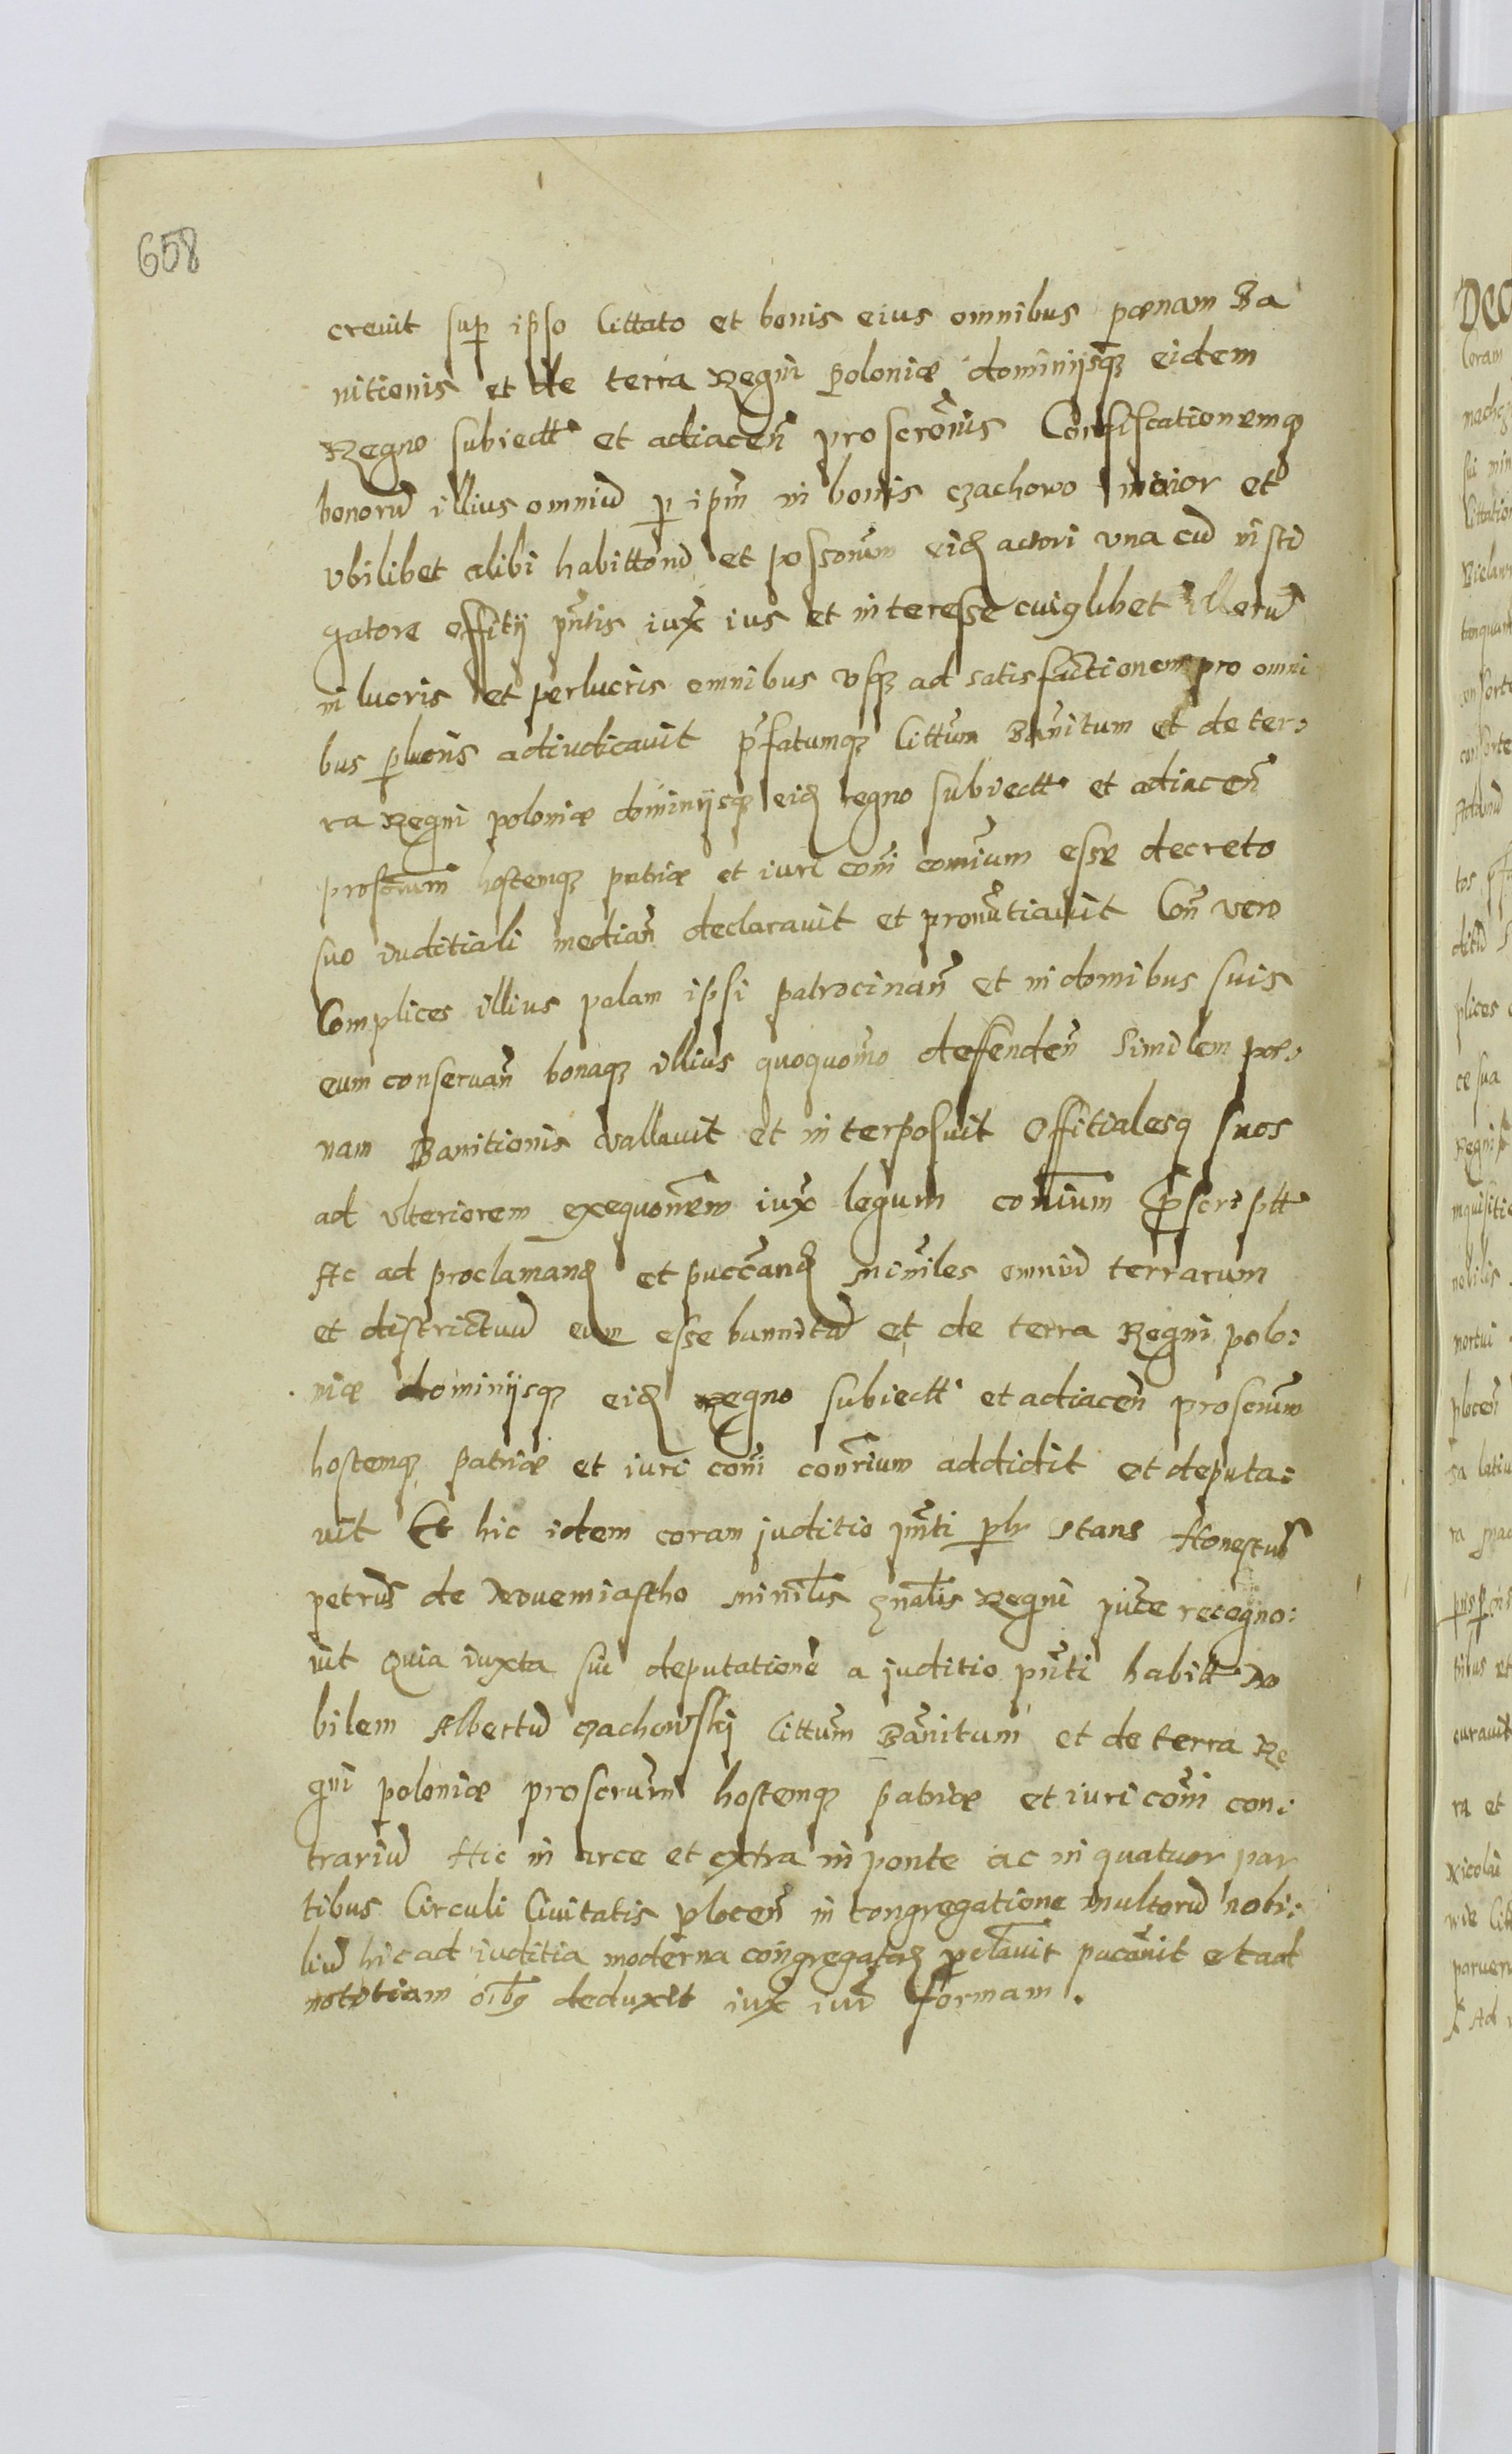 658
creuit sup ipso Cittato et bonis eius omnibus poenam Ba
nitionis et de terra Regni Poloniæ dominijsqz eidem
Regno subiectt et adiaceñ proscrõnis Confiscationemq
bonorũ illius omniũ p ipm̃ in bonis Czachowo maior et
vbilibet alibi habittonũ et possorum eidẽ actori vna cũ insti
gatore offitij pñtis iux̃ ius et interesse cuiuslibet illorũ
in lucris et perlucris omnibus vsqz ad satisfactionem pro omni
bus plucris adiudicauit p̃fatumqz Cittũm Bañitum et de ter:
ra Regni poloniæ dominijsqz eidẽ regno subiectt et adiaceñ
proscrũm hostemqz patriæ et iuri coñi coñrium esse decreto
suo iuditiali mediañ declarauit et pronũtiauit Coñ vero
Complices illius palam ipsi patrocinañ et in domibus suis
eum conseruañ bonaqz illius quoquom̃o deffendeñ similem poe:
nam Banitionis vallauit et interposuit Offitialesq suos
ad vlteriorem exequõnem iux̃ legum coñium p̃scriptt
Ac ad proclamandẽ et pucc̃andẽ Miniles omniũ terrarum
et districtuũ eum esse bannitũ et de terra Regni polo:
niæ dominijsqz eidẽ regno subiectt et adiaceñ proscrũm
hostemqz patriæ et iuri coñi coñrium addidit et deputa:
uit Et hic idem coram juditio pñti plr stans Honestus
petrus de Nouemiastho Minilis gñalis Regni puce recogno:
uit Quia iuxta sui deputationẽ a juditio pñti habitt No
bilem Albertũ Czachowskj Cittũm Bañitum et de terra Re
gni poloniæ proscrũm hostemqz patriæ et iuri coñi con:
trariũ Hic in arce et extra in ponte ac in quatuor par
tibus Circuli Ciuitatis ploceñ in congregatione multorũ nobi:
liũ hic ad iuditia moderna congregatorũ pclãuit puc̃auit et ad
notitiam oĩbg deduxit iux iuris formam.